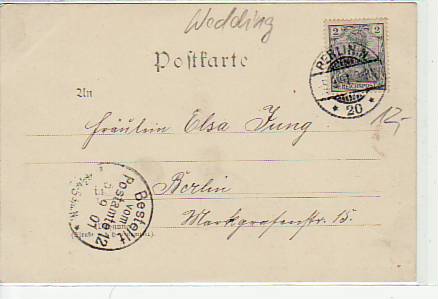 Wedding
Postkarte
2 2
REICHSPOST
BERLIN, N.
* 20 *
12,-
An
Fräulein Elsa Jung
Berlin
Markgrafenstr. 15.
Bestellt
vom
Postamte 12
9 01